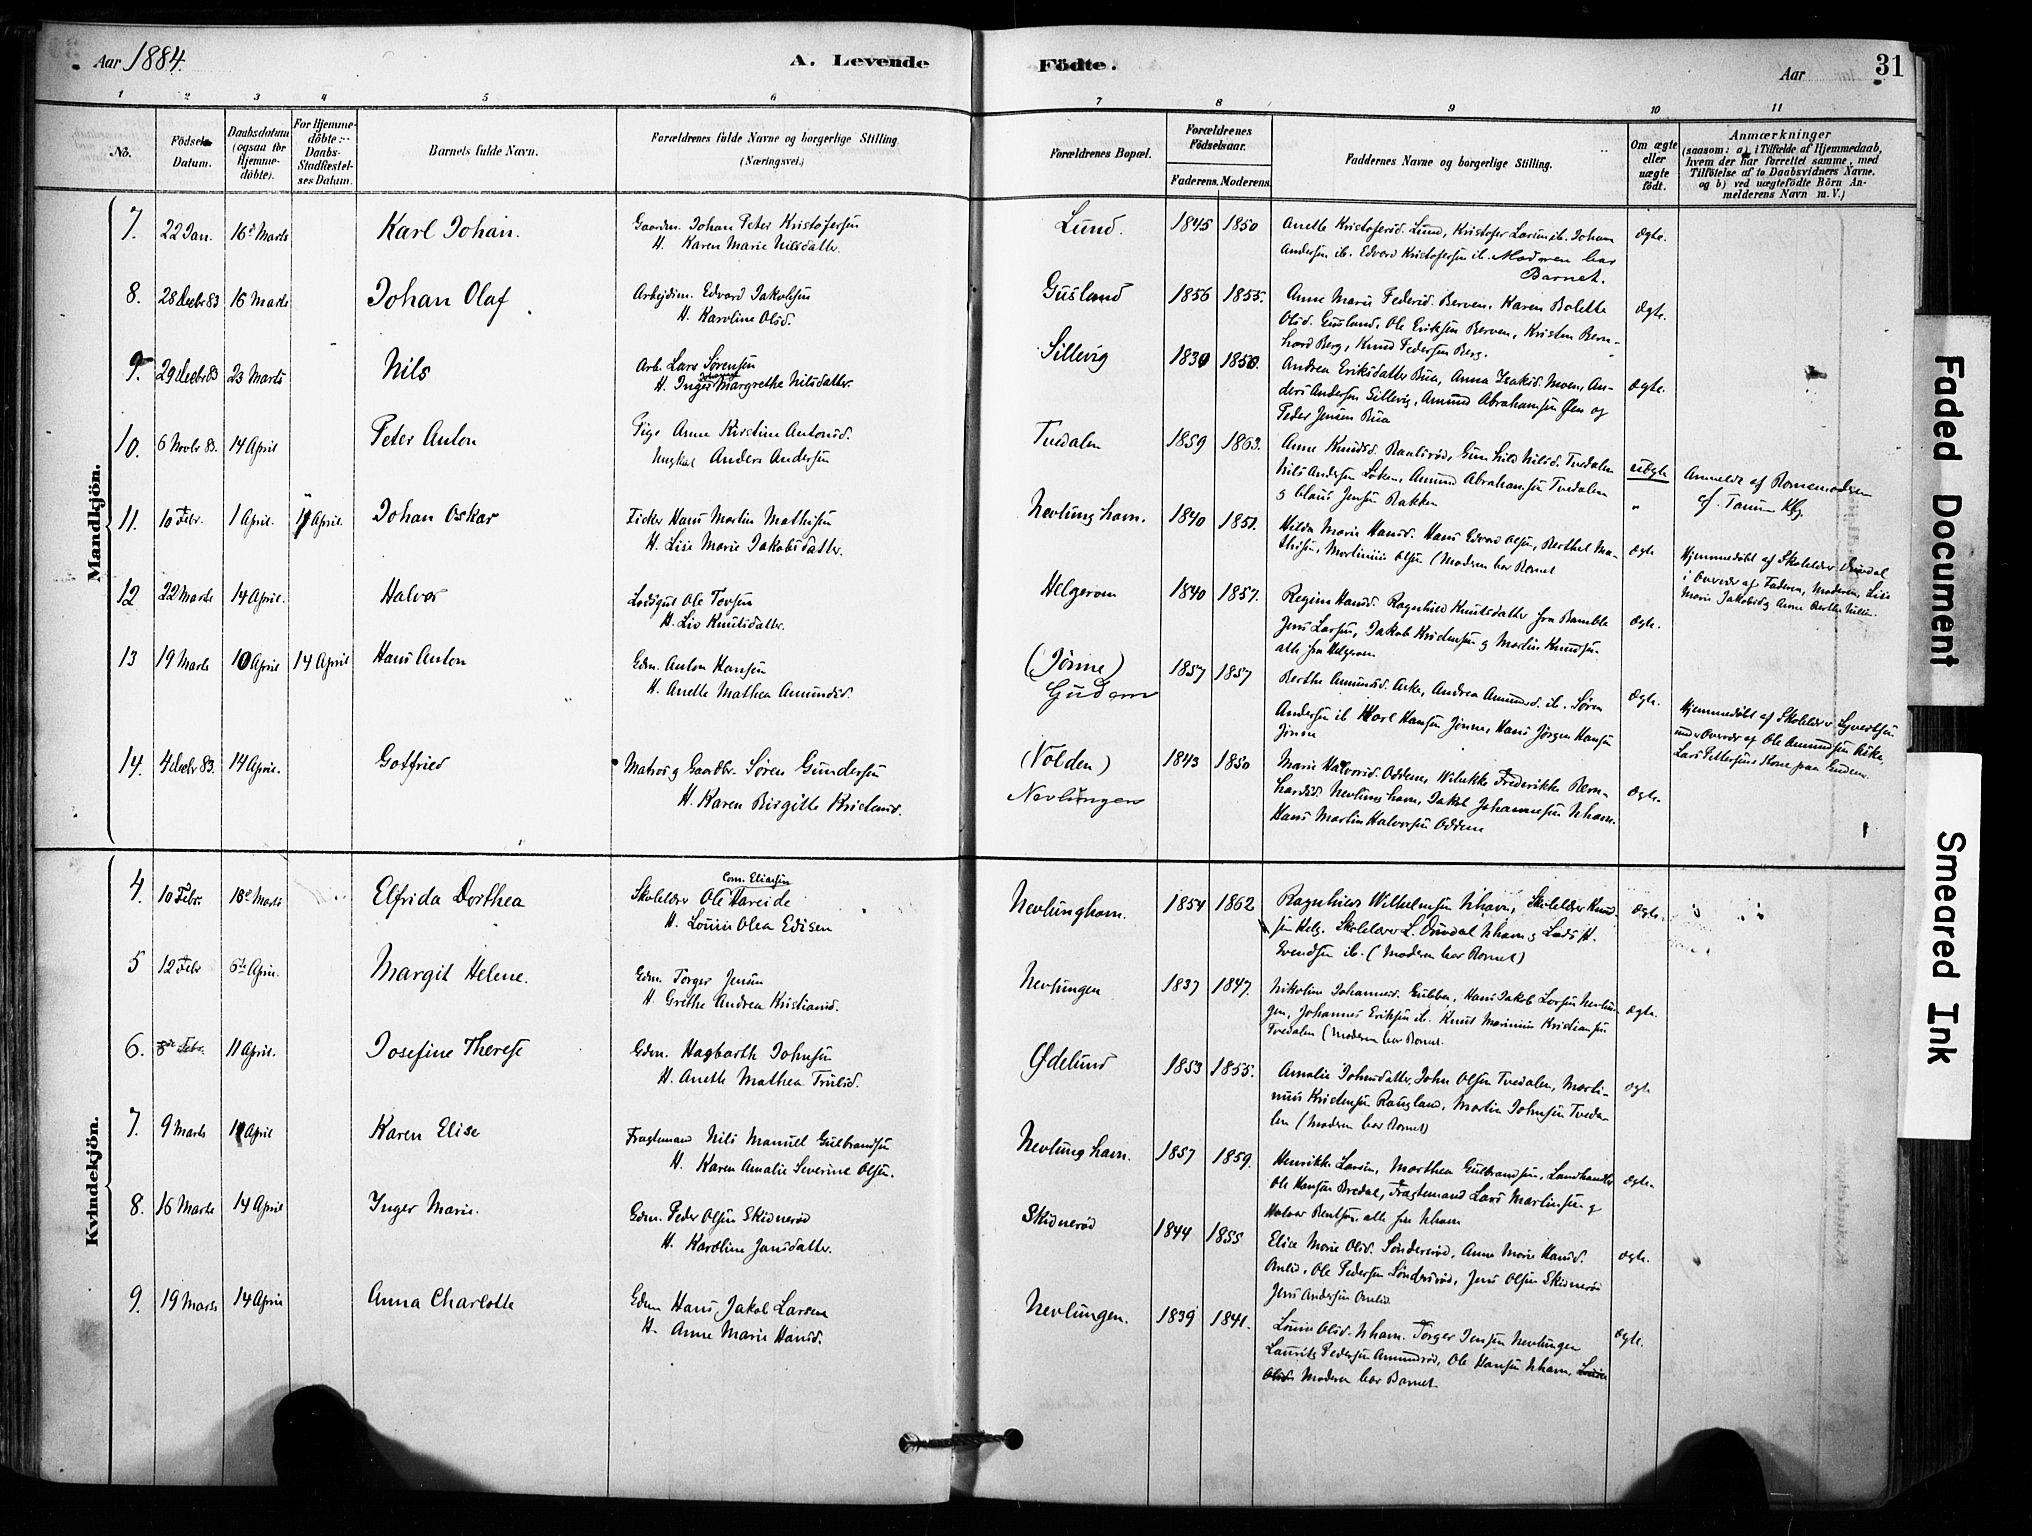 Aar 1884.
A. Levende
Födte.
Aar
31
1 2 3 4 5 6 7 8 9 10 11
No.
Födsels-
Datum.
Daabsdatum
(ogsaa for
Hjemme-
döbte).
For Hjemme-
döbte:
Daabs-
Stadfæstel-
ses Datum.
Barnets fulde Navn.
Forældrenes fulde Navne og borgerlige Stilling
(Næringsvei.)
Forældrenes Bopæl.
Forældrenes
Födselsaar.
Faderens. Moderens.
Faddernes Navne og borgerlige Stilling.
Om ægte
eller
uægte
födt.
Anmærkninger
(saasom: a) i Tilfælde af Hjemmedaab,
hvem der har forrettet samme, med
Tilföielse af to Daabsvidners Navne.
og b) ved uægtefödte Börn An-
melderens Navn m. V.)
Mandkjön.
7. 22 Jan. 16 Marts Karl Johan. Gaardm. Johan Peter Kristofersen
H. Karen Marie Nilsdatter
Lund. 1845 1850 Anette Kristofersd. Lund, Kristofer Larsen ib. Johan
Andersen ib. Edvard Kristofersen ib. Moderen bar
Barnet. Ægte.
8. 28 Decbr 83 16 Marts Johan Olaf Arbejdsm. Edvard Jakobsen
H. Karoline Olsd.
Gusland 1856 1855. Anne Marie Pedersd. Berven, Karen Bolette
Olsd. Gusland, Ole Eriksen Berven, Kristen Bern-
hard Berg, Knud Pedersen Berg. Ægte.
9. 29 Decbr 83 23 Marts Nils Arb. Lars Sørensen
H. Inger Margrethe Nilsdatter.
Sillevig 1830 1850. Andrea Eriksdatter Bua, Anna Isaksd. Moen, An-
ders Andersen Sillevig, Amund Abrahamsen Øen og
Peder Jensen Bua Ægte.
10. 6 Novbr 83. 14 April Peter Anton Pige Anne Kirstine Antonsd.
Ungkarl Anders Andersen
Tvedalen 1859 1863. Anne Knudsd. Gunhild Nilsd. Tvedalen
Nils Andersen Løken, Amund Abrahamsen Tvedalen
og Claus Jensen Bakken uægte Anmeldt af Barnemoderen
af Tanum Kbg.
11. 10 Febr. 1 April. 11 April. Johan Oskar Fisker Hans Martin Mathisen
H. Lise Marie Jakobsdatter.
Nevlunghavn. 1840 1851. Hilda Marie Hansd. Hans Edvard Olsen, Berthel Ma-
thisen, Martinius Olsen (Moderen bar Barnet Ægte Hjemmedøbt af Skolelærer Omdal
i Overvær af Faderen, Moderen, Lise
Marie Jakobsd. og Anne Berthe Nilsen.
12 22 Marts 14 April. Halvor Lodsgut Ole Torsen
H. Liv Knutsdatter.
Helgeroen 1840 1857. Regine Hansd. Ragnhild Knutsdatter fra Bamble
Jens Larsen, Jakob Kristensen og Martin Knudsen.
alle fra Helgeroen Ægte.
13 19 Marts 10 April 14 April Hans Anton Gdm. Anton Hansen
H. Anette Mathea Amundsd.
(Jønne)
Gudem 1857 1857 Berthe Amundsd. Aske, Andrea Amundsd. ib. Søren
Andersen ib Karl Hansen Jønne, Hans Jørgen Hansen
Jønne Ægte. Hjemmedøbt af Skolelærer Syvertsen
under Overvær af Ole Amundsen Aske,
Lars Pettersens Kone paa Gudem.
14. 4 Decbr 83. 14 April. Gotfried Matros og Gaardbr. Søren Gundersen
H. Karen Birgitte Kristensd.
(Volden)
Nevlungen 1843 1850 Marie Halvorsd. Oddene, Wilukke Frederikke Bern-
hardsd. Nevlunghavn, Jakob Johannessen Nhavn.
Hans Martin Halvorsen Oddene Ægte.
Kvindekjön.
4. 10 Febr. 16 Marts Elfrida Dorthea Skolelærer Ole Corn. Eliassen Hareide
H. Louise Olea Edisen
Nevlunghavn. 1854 1862 Ragnhild Wilhelmsen Nhavn, Skolelærer Knud-
sen Helg. Skolelærer L. Omdal Nhavn og Lods H.
Evendsen ib. (Moderen bar Barnet) Ægte.
5 12 Febr 6te April. Margit Helene. Gdm. Torger Jensen
H. Grethe Andrea Kristiansd.
Nevlungen 1837 1847. Nikoline Johannesd. Gubba, Hans Jakob Larsen Nevlun-
gen, Johannes Eriksen ib. Knut Marinius Kristiansen
Tvedalen (Moderen bar Barnet. Ægte.
6. 8de Febr. 11 April. Josefine Therese Gdm. Hagbarth Johnsen
H. Anette Mathea Trulsd.
Ødelund 1853 1855. Amalie Johnsdatter, John Olsen Tvedalen, Marti-
nius Kristensen Raugland, Martin Johnsen Tveda-
len (Moderen bar Barnet) Ægte
7. 9 Marts 11 April Karen Elise Fragtemand Nils Manuel Gulbrandsen
H. Karen Amalie Severine Olsen.
Nevlunghavn. 1857 1859. Henrikke Larsen, Marthea Gulbrandsen, Landhandler
Ole Hansen Bredal, Fragtemand Lars Martinsen og
Halvor Bentsen alle fra Nhavn Ægte.
8. 16 Marts 14 April Inger Marie. Gdm. Peder Olsen Skidnerød
H. Karoline Jansdatter.
Skidnerød 1844 1855 Elise Marie Olsd. Søndersrød, Anne Marie Hansd.
Omlid, Ole Pedersen Søndersrød, Jens Olsen Skidnerød
Jens Andersen Omlid Ægte.
9. 19 Marts 14 April Anna Charlotte Gdm Hans Jakob Larsen
H. Anne Marie Hansd.
Nevlungen. 1839 1841. Louise Olsd. Nhavn. Torger Jensen Nevlungen
Laurits Pedersen Amundrød, Ole Hansen Nhavn, Louise
Olsd Moderen bar Barnet. Ægte.
Faded Document
Smeared Ink